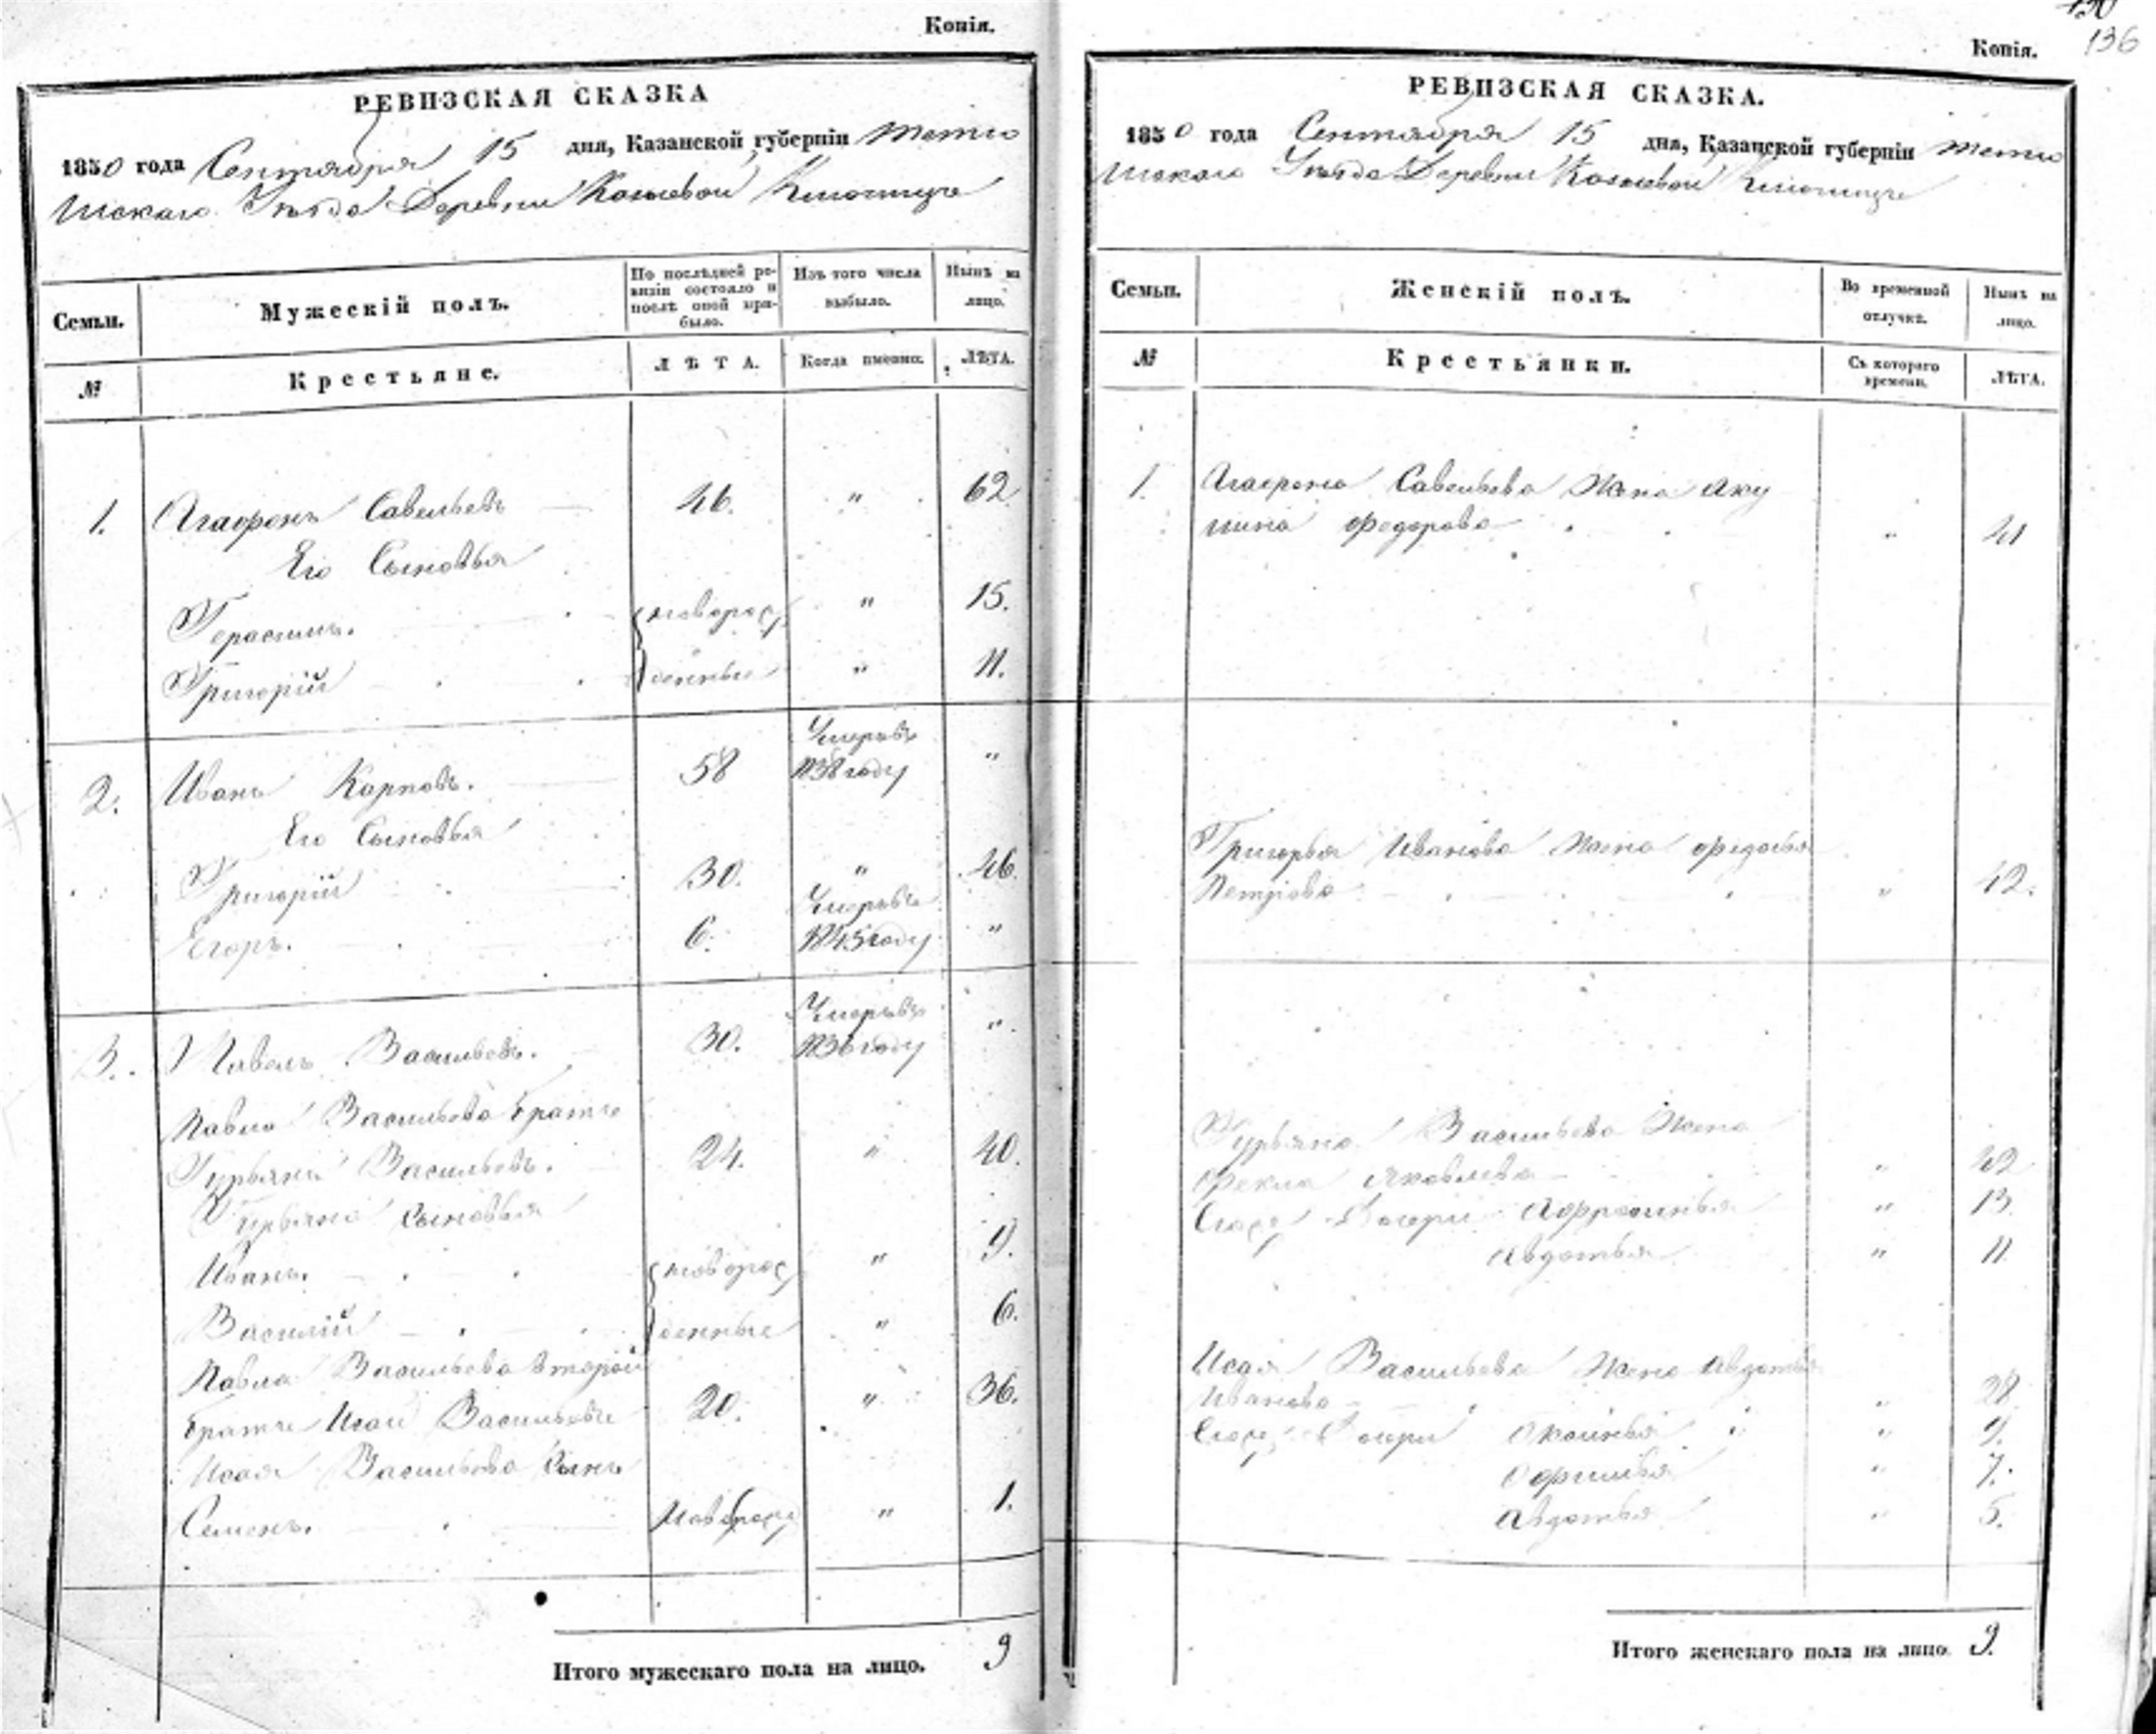 Копія.
РЕВИЗСКАЯ СКАЗКА
1850 года Сентября 15 дня, Казанской губерніи Тетю
шскаго Уѣзда Деревни
Семьи. Мужескій полъ. По послѣдней ре- Изъ того числа Нынѣ на
визіи состояло и выбыло. лицо.
послѣ оной при-
было.
№ Крестьяне. ЛѢТА. Когда именно. ЛѢТА.
1. Агафонъ Савельевъ 46. " 62
Его Сыновья
Герасимъ. новорож " 15.
Григорій денные " 11.
2. Иванъ Карповъ. 58 Умеръ въ 1838 году "
Его Сыновья
Григорій 30. " 46.
Егоръ. 6. Умеръ въ 1845 году "
3. Павелъ Васильевъ. 30. Умеръ въ 1836 году "
Павла Васильева братъ
Гурьянъ Васильевъ. 24. " 40.
Гурьяна сыновья
Иванъ. новорож " 9.
Василій денные " 6.
Павла Васильева второй
братъ Исай Васильевъ 20. " 36.
Исая Васильева сынъ
Семенъ. Новорож " 1.
Итого мужескаго пола на лицо. 9
136
Копія.
РЕВИЗСКАЯ СКАЗКА.
1850 года Сентября 15 дня, Казанской губерніи Тетю
шскаго Уѣзда Деревни
Семьи. Женскій полъ. Во временной Нынѣ на
отлучкѣ. лицо.
№ Крестьянки. Съ котораго ЛѢТА.
времени.
1. Агафона Савельева Жена Аку
лина Федорова " 41
Григорья Иванова Жена Федосья
Петрова " 42.
Гурьяна Васильева Жена
Фекла Яковлева " 42
Его дочери Афросинья " 13
Авдотья " 11
Исая Васильева Жена Авдотья
Иванова " 28
Его дочери " 9.
" 7.
Авдотья " 5.
Итого женскаго пола на лицо 9.